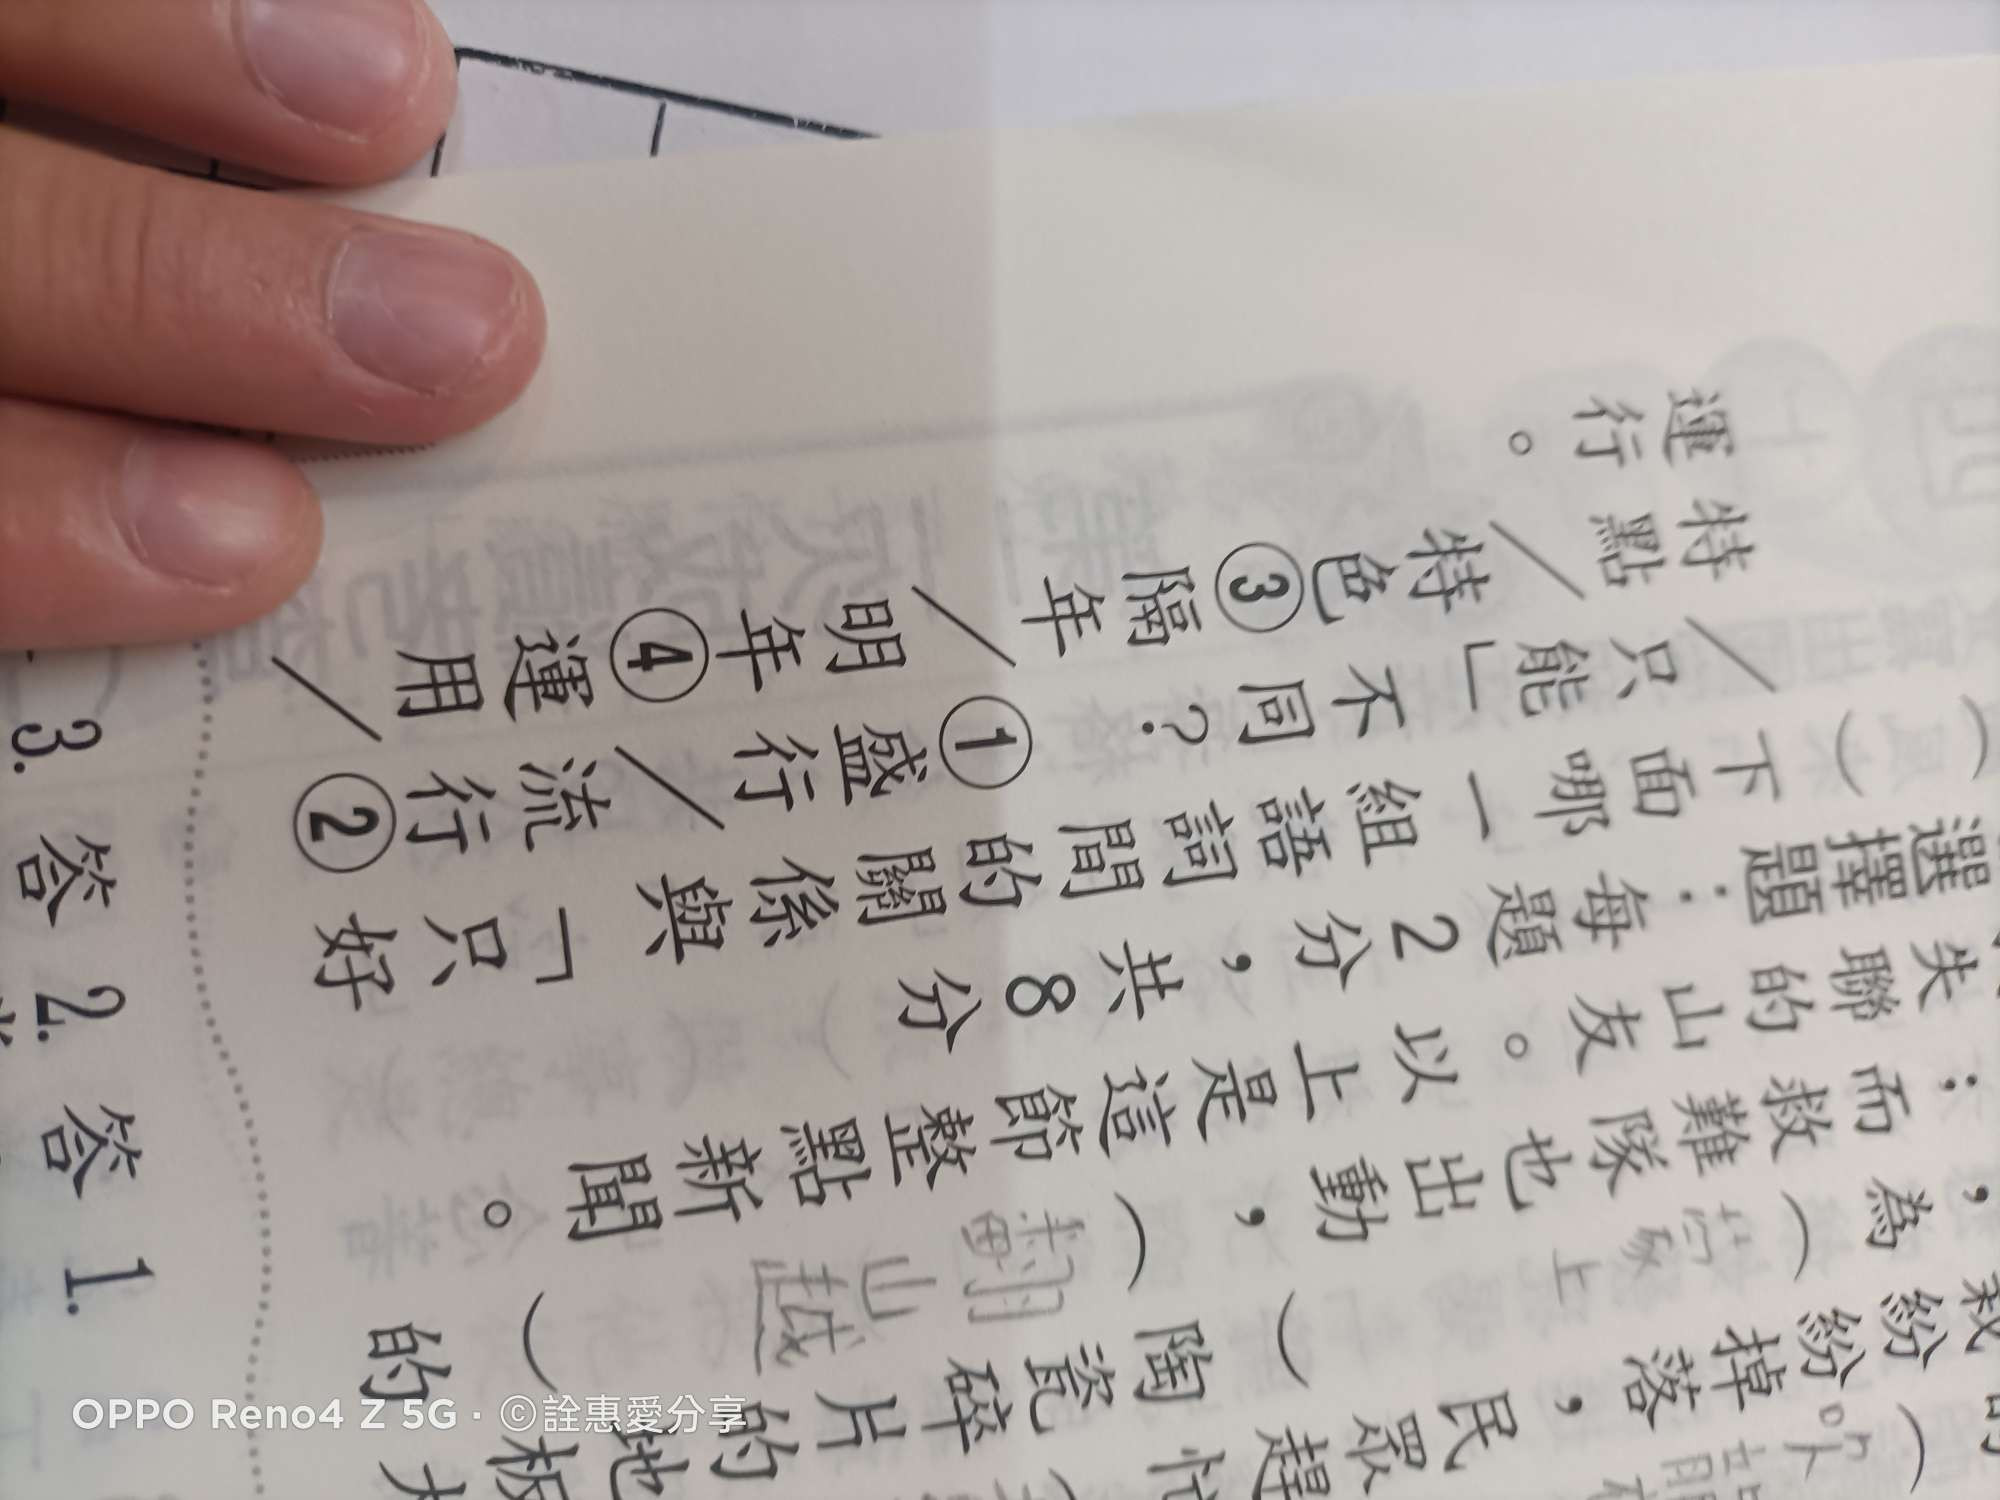 紛紛掉落，民眾趕忙
，為（
）陶瓷碎片的地板
；而救難隊也出動，（翻山越）的
失聯的山友。以上是這節整點新聞。
選擇題：每題2分，共8分
（ ）下面哪一組語詞間的關係與「只好
／只能」不同？①盛行／流行②
特點／特色③隔年／明年④運用／
運行。
1. 答 2. 答 3.
OPPO Reno4 Z 5G · ©詮惠愛分享